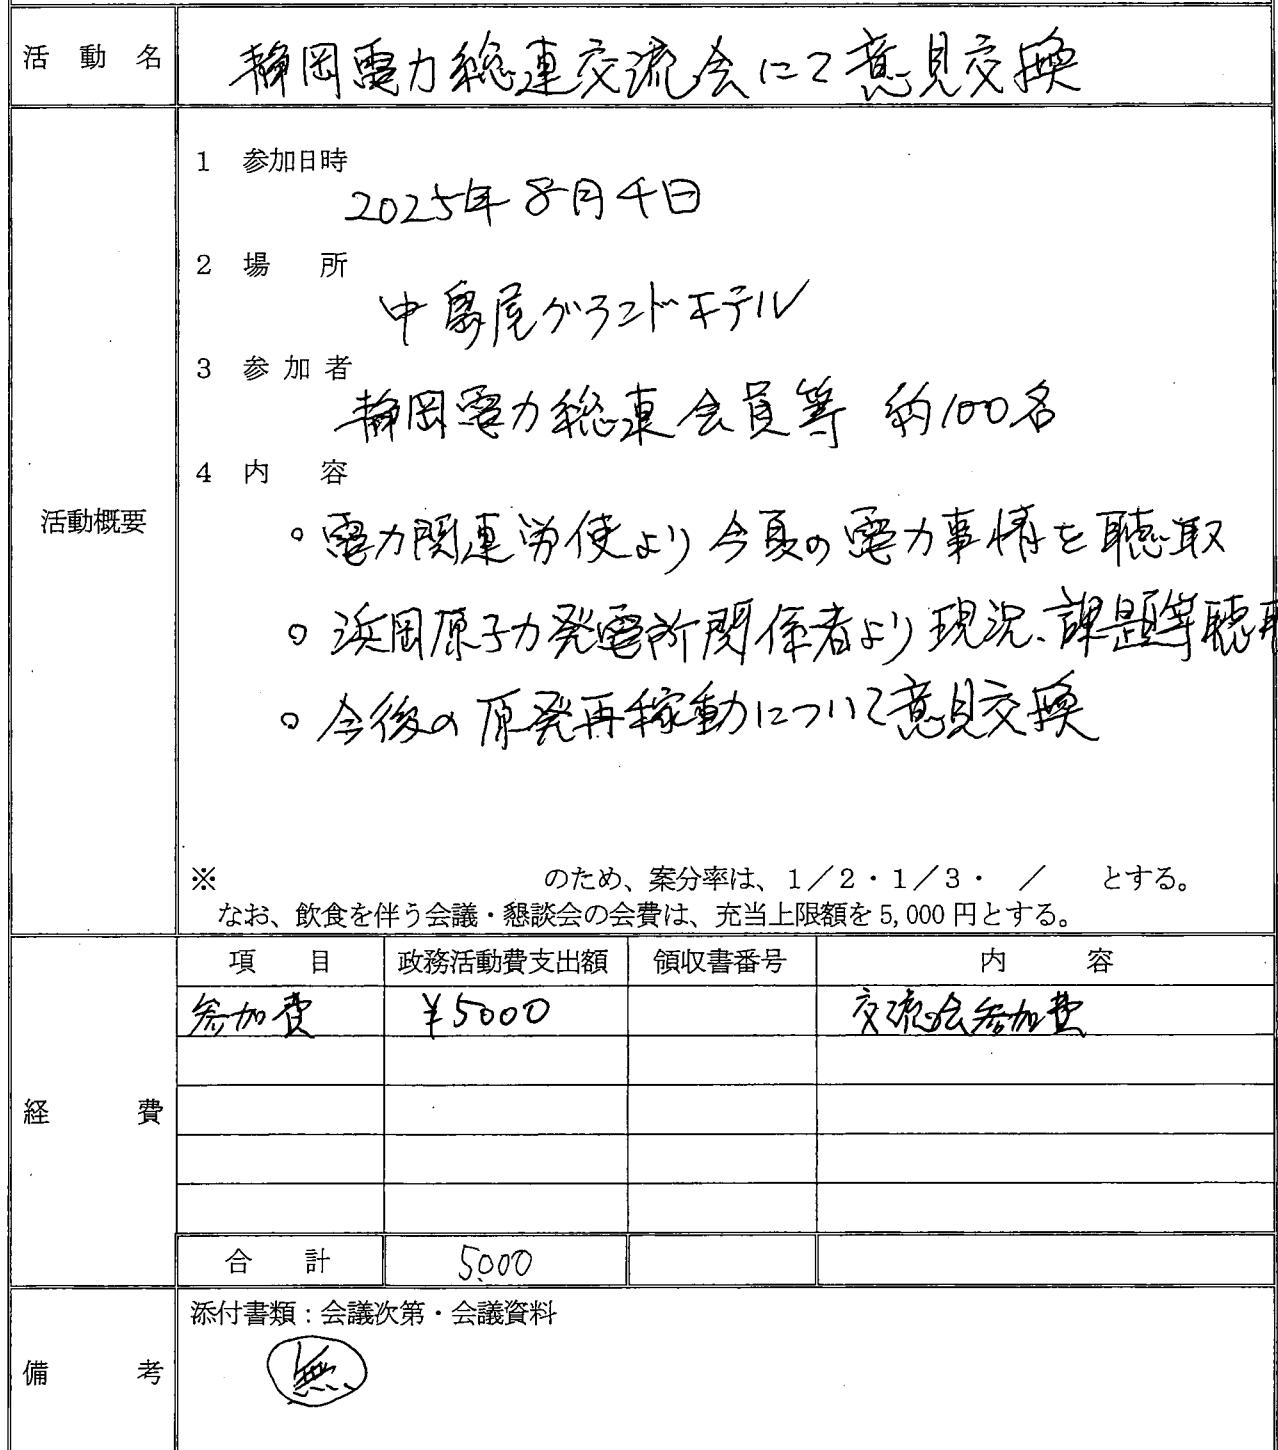 活動名 静岡電力総連交流会にて意見交換
活動概要
1 参加日時
2025年8月4日
2 場所
中島屋グランドホテル
3 参加者
静岡電力総連会員等 約100名
4 内容
○電力関連労使より今夏の電力事情を聴取
○浜岡原子力発電所関係者より現況、課題等聴取
○今後の原発再稼動について意見交換
※ のため、案分率は、1/2・1/3・ / とする。
なお、飲食を伴う会議・懇談会の会費は、充当上限額を5,000円とする。
経費
項目 政務活動費支出額 領収書番号 内容
参加費 ¥5000 交流会参加費
合計 5000
備考
添付書類:会議次第・会議資料
無